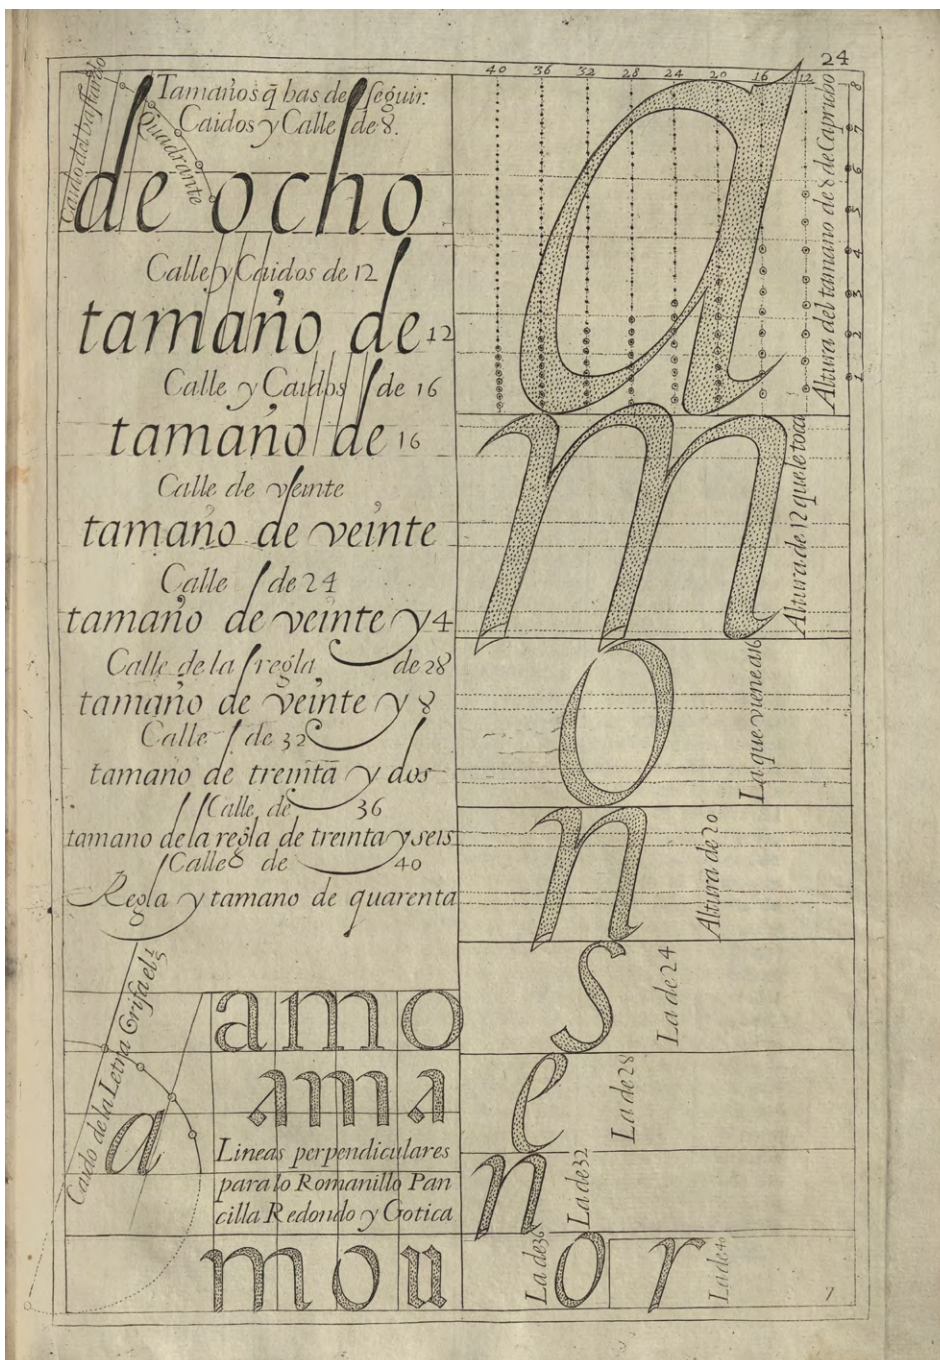 24
Tamaños q̃ has de seguir:
Caidos y Calle de 8.
Caido del bastardo
Quadrante
de ocho
Calle y Caidos de 12
tamaño de 12
Calle y Caidos de 16
tamaño de 16
Calle de veinte
tamaño de veinte
Calle de 24
tamaño de veinte y 4
Calle de la regla de 28
tamaño de veinte y 8
Calle de 32
tamano de treinta y dos
Calle de 36
tamano de la regla de treinta y seis
Calle de 40
Regla y tamano de quarenta
Caido de la Letra Grifa el 1/5
a
amo
ama
Lineas perpendiculares
para lo Romanillo Pan
cilla Redondo y Gotica
mou
40 36 32 28 24 20 16 12
8
7
6
5
4
3
2
1
a
Altura del tamano de 8 de Caprubo
m
Altura de 12 que le toca
o
La que viene a 16
n
Altura de 20
s
La de 24
e
La de 28
n
La de 32
La de 36
o
r
La de 40